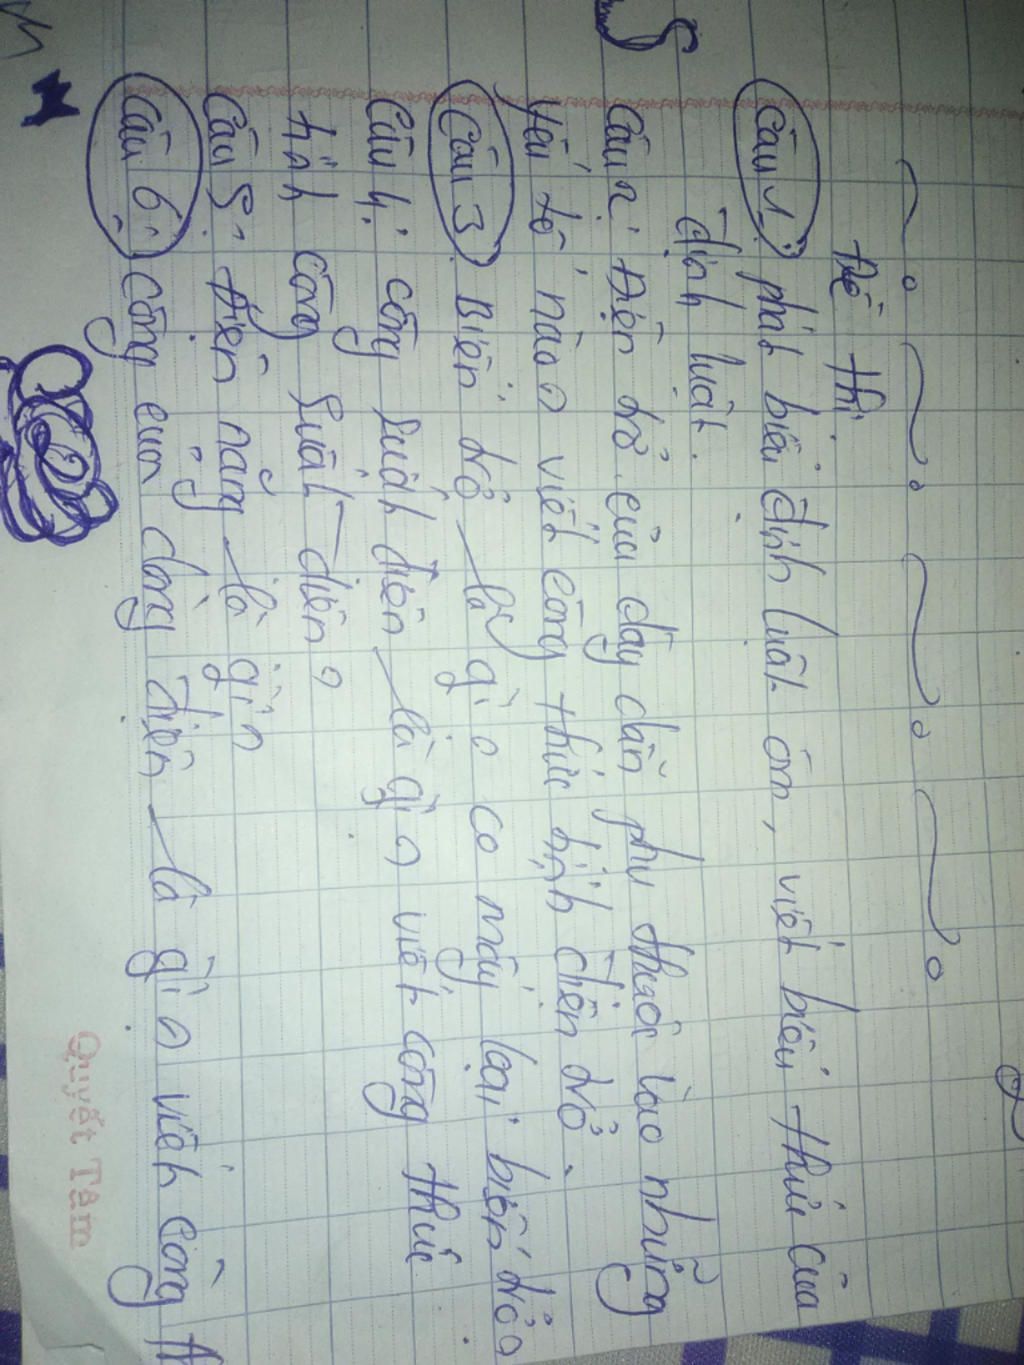 Đề thi
Câu 1: phát biểu định luật ôm, viết biểu thức của
định luật.
Câu 2: Điện trở của dây dẫn phụ thuộc vào những
yếu tố nào? viết công thức tính điện trở.
Câu 3: Biến trở là gì? có mấy loại biến trở?
Câu 4: công suất điện là gì? viết công thức
tính công suất điện?
Câu 5: Điện năng là gì?
Câu 6: công của dòng điện là gì? viết công
Quyết Tâm